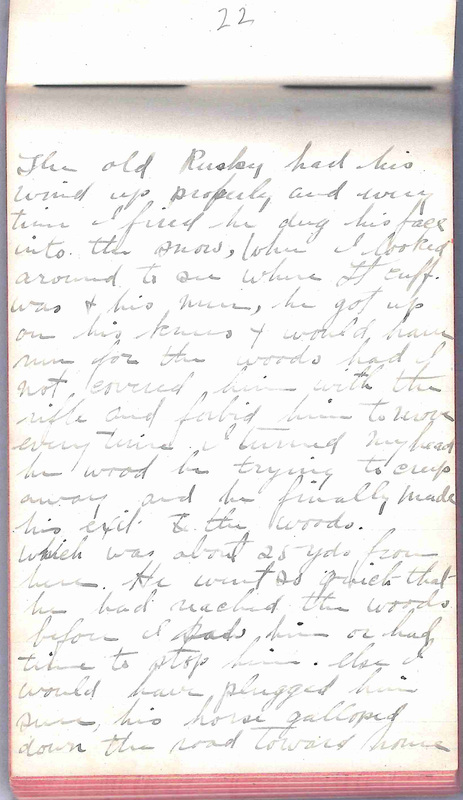 22
The old Rusky had his
wind up properly and every
time I fired he dug his face
into the snow, when I looked
around to see where Lt Cuff
was & his men, he got up
on his knees & would have
run for the woods had I
not covered him with the
rifle and forbid him to move
every time I turned my head
he wood be trying to creep
away and he finally made
his exit to the woods.
which was about 25 yds from
here. He went so quick that
he had reached the woods
before I him or had
time to stop him. else I
would have plugged him
sure, his horse galloped
down the road toward home